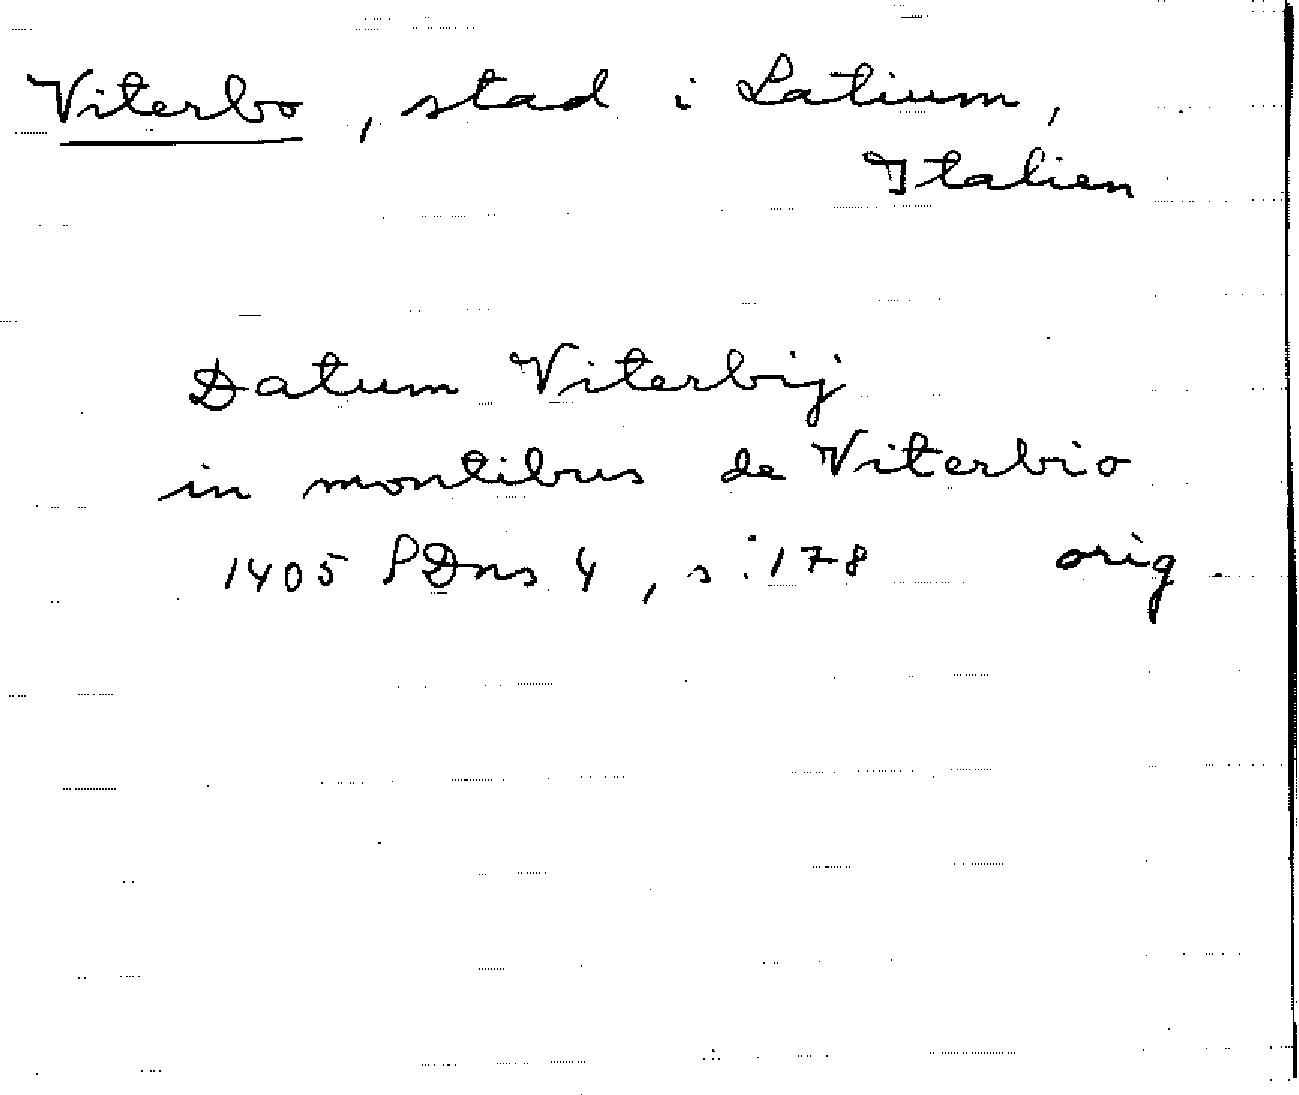 Viterbo, stad i Latium,
Italien
Datum Viterbij
in montibus de Viterbio
1405 SDns 4, s: 178 orig.